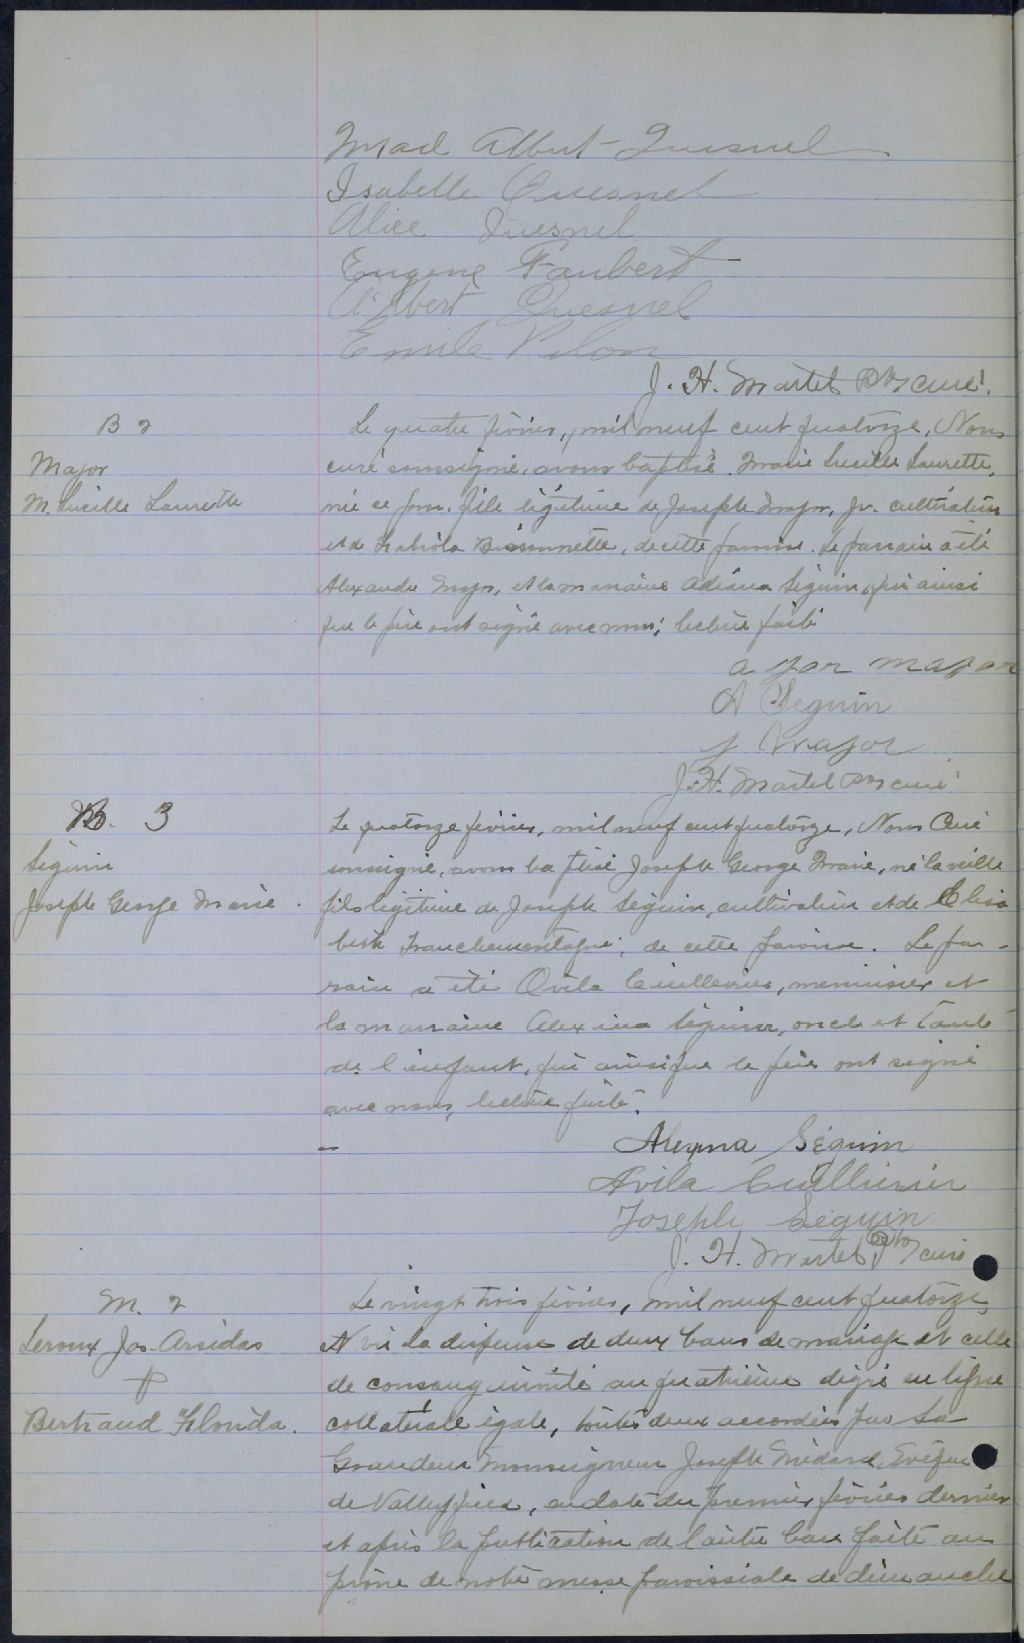 Mad Albert Quesnel
Isabelle Quesnel
Alice Quesnel
Eugene Faubert
Albert Quesnel
Emile Pilon
J. H. Martel Ptre curé.
B 2
Major
M. Lucille Laurette
Le quatre février, mil neuf cent quatorze, Nous
curé soussigné, avons baptisé Marie Lucille Laurette,
née ce jour, fille légitime de Joseph Major, Jr. cultivateur
et de Bissonnette, de cette paroisse. Le parrain a été
Alexandre Major, et la marraine Adéana Séguin, qui ainsi
que le père ont signé avec nous; lecture faite
Major
A Seguin
J Major
J. H. Martel Ptre curé
B. 3
Séguin
Joseph George Marie.
Le quatorze février, mil neuf cent quatorze, Nous Curé
soussigné, avons baptisé Joseph George Marie, né la veille
fils légitime de Joseph Séguin, cultivateur et de Elisa
beth Franchemontagne, de cette paroisse. Le par-
rain a été Ovila Cuillerier, menuisier et
la marraine Alexina Séguin, oncle et tante
de l'enfant, qui ainsi que le père ont signé
avec nous, lecture faite.
Alexina Séguin
Avila Cuillierier
Joseph Séguin
J. H. Martel Ptre curé
M. 2
Leroux Jos. Arsidas
&
Bertrand Florida.
Le vingt trois février, mil neuf cent quatorze,
Vu la dispense de deux bans de mariage et celle
de consanguinité au quatrième degré en ligne
collatérale égale, toutes deux accordées par Sa
Grandeur Monseigneur Joseph Médard, Evêque
de Valleyfield, en date du premier février dernier
et après la publication de l'autre ban faite au
prône de notre messe paroissiale de dimanche